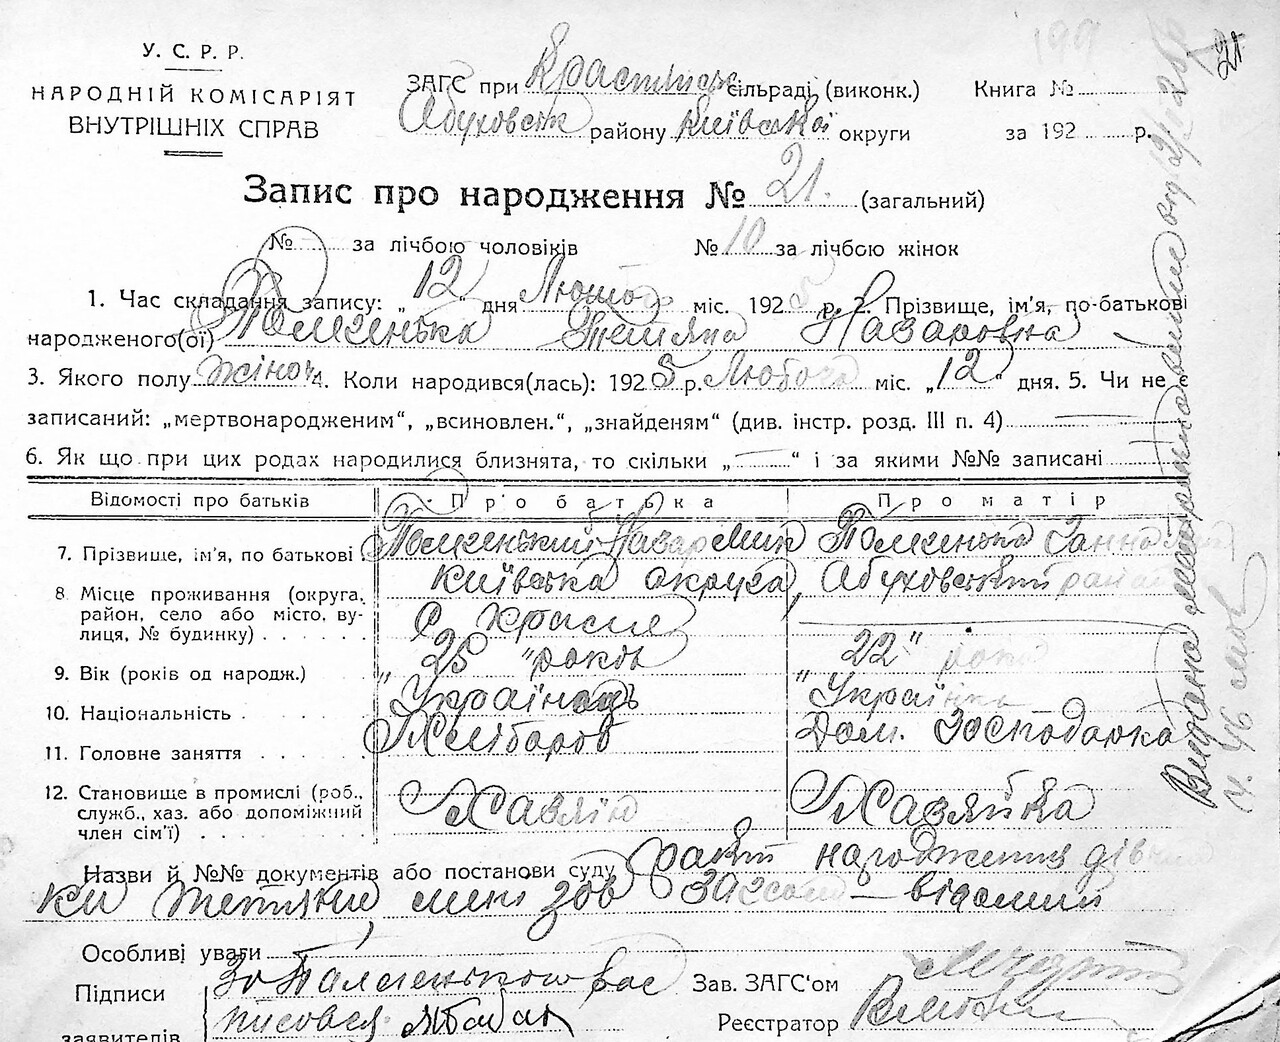 У. С. Р. Р.
НАРОДНІЙ КОМІСАРІЯТ
ВНУТРІШНІХ СПРАВ
ЗАГС при сільраді (виконк.)
Обуховськ району Київської округи
Книга №
за 192 р.
21
Запис про народження № 21. (загальний)
№ за лічбою чоловіків № 10 за лічбою жінок
1. Час складання запису: „12“ дня Лютого міс. 1925 р. 2. Прізвище, ім'я, по-батькові
народженого(ої) Тетяна Назаровна
3. Якого полу жіноч 4. Коли народився(лась): 1925 р. Лютого міс. „12“ дня. 5. Чи не є
записаний: „мертвонародженим“, „всиновлен.“, „знайденям“ (див. інстр. розд. III п. 4)
6. Як що при цих родах народилися близнята, то скільки „ “ і за якими №№ записані
Відомості про батьків Про батька Про матір
7. Прізвище, ім'я, по батькові Назар Ганна
8 Місце проживання (округа, Київська округа, Обуховський район
район, село або місто, ву- с
лиця, № будинку)
9. Вік (років од народж.) „25 “років „22“ роки
10. Національність Українець Українка
11. Головне заняття Хлібороб Дом. Господарка
12. Становище в промислі (роб.,
служб., хаз. або допоміжний Хазяїн Хазяйка
член сім'ї)
Назви й №№ документів або постанови суду факт народження
ки Тетяни, мені зав ЗАГСом — відомий
Особливі уваги
Підписи За
заявителів
Зав. ЗАГС'ом
Реєстратор
Видана